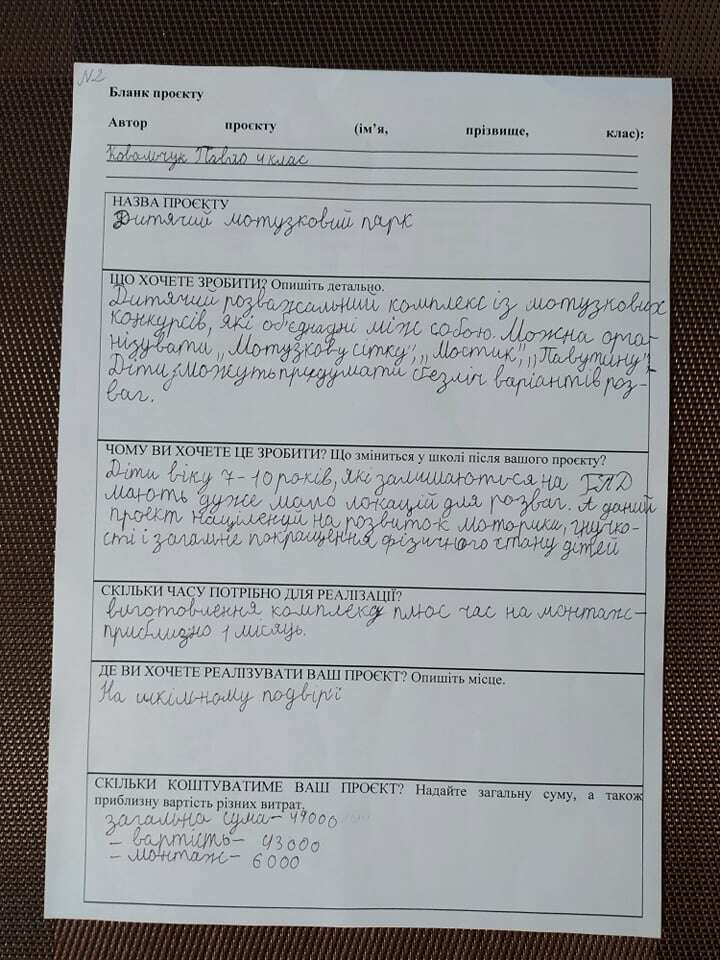 N2
Бланк проєкту
Автор проєкту (ім'я, прізвище, клас):
Ковальчук Павло 4 клас
НАЗВА ПРОЄКТУ
Дитячий мотузковий парк
ЩО ХОЧЕТЕ ЗРОБИТИ? Опишіть детально.
Дитячий розважальний комплекс із мотузкових
конкурсів, які об'єднадні між собою. Можна орга-
нізувати „Мотузкову сітку", „Мостик", „Павутину".
Діти можуть придумати безліч варіантів роз-
ваг.
ЧОМУ ВИ ХОЧЕТЕ ЦЕ ЗРОБИТИ? Що зміниться у школі після вашого проєкту?
Діти віку 7-10 років, які залишаються на ГПД
мають дуже мало локацій для розваг. А даний
проєкт націлений на розвиток моторики, гнучко-
сті і загальне покращення фізичного стану дітей
СКІЛЬКИ ЧАСУ ПОТРІБНО ДЛЯ РЕАЛІЗАЦІЇ?
виготовлення комплексу плюс час на монтаж-
приблизно 1 місяць.
ДЕ ВИ ХОЧЕТЕ РЕАЛІЗУВАТИ ВАШ ПРОЄКТ? Опишіть місце.
На шкільному подвір'ї
СКІЛЬКИ КОШТУВАТИМЕ ВАШ ПРОЄКТ? Надайте загальну суму, а також
приблизну вартість різних витрат.
загальна сума- 49000
- вартість- 43000
- монтаж- 6000